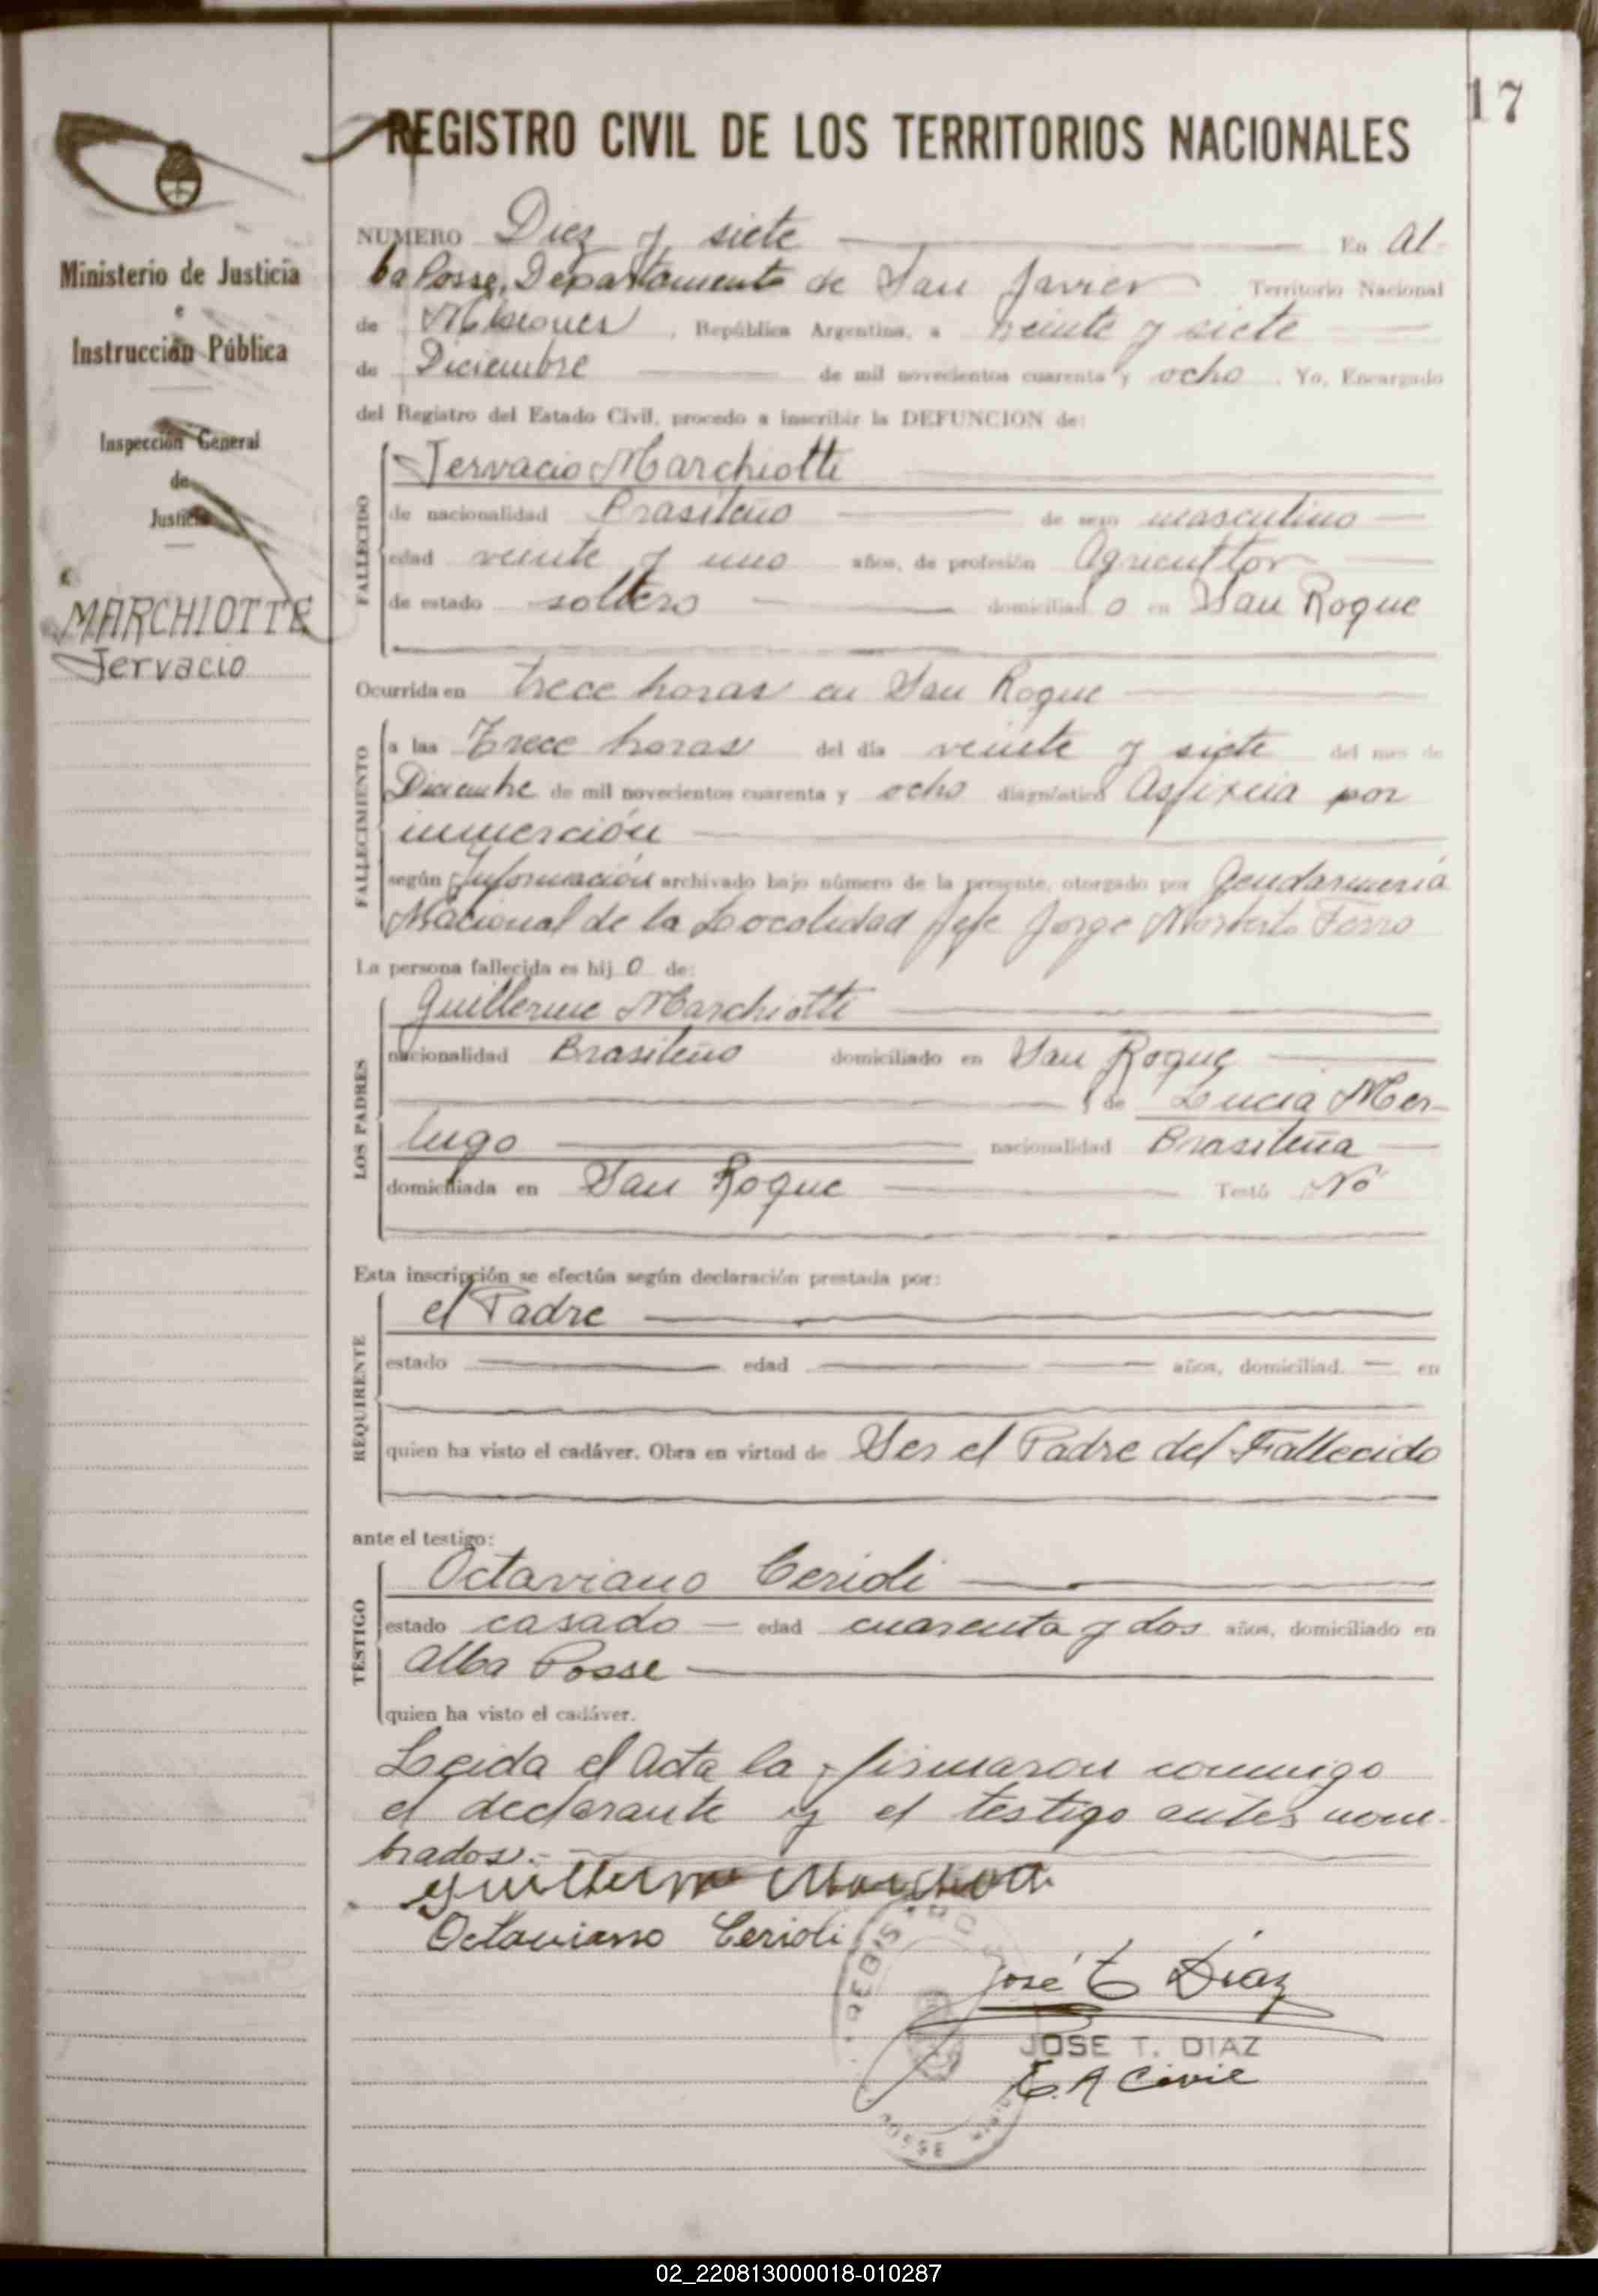 17
REGISTRO CIVIL DE LOS TERRITORIOS NACIONALES
Ministerio de Justicia
e
Instrucción Pública
Inspección General
de
Justicia
MARCHIOTTE
Jervacio
NUMERO Diez y siete En Al-
ba Posse, Departamento de San Javier Territorio Nacional
de Misiones, República Argentina, a veinte y siete
de Diciembre de mil novecientos cuarenta y ocho. Yo, Encargado
del Registro del Estado Civil, procedo a inscribir la DEFUNCION de:
FALLECIDO
Jervacio Marchiotti
de nacionalidad Brasileño de sexo masculino
edad veinte y uno años, de profesión Agricultor
de estado soltero domiciliado en San Roque
Ocurrida en trece horas en San Roque
FALLECIMIENTO
a las Trece horas del día veinte y siete del mes de
Diciembre de mil novecientos cuarenta y ocho diagnóstico Asfixia por
inmerción
según Información archivado bajo número de la presente, otorgado por Gendarmeria
Nacional de la Localidad Jefe Jorge Norberto Ferro
La persona fallecida es hijo de:
LOS PADRES
Guillerme Marchiotti
nacionalidad Brasileño domiciliado en San Roque
y de Lucia Mer-
lugo nacionalidad Brasileña
domiciliada en San Roque Testó No
Esta inscripción se efectúa según declaración prestada por:
REQUIRENTE
el Padre
estado edad años, domiciliad en
quien ha visto el cadáver. Obra en virtud de Ser el Padre del Fallecido
ante el testigo:
TESTIGO
Octaviano Cerioli
estado casado edad cuarenta y dos años, domiciliado en
Alba Posse
quien ha visto el cadáver.
Leida el Acta la firmaron conmigo
el declarante y el testigo antes nom-
brados.-
Guillerme
Octaviano Cerioli
REGISTRO
José T Diaz
JOSE T. DIAZ
Civil
POSSE
02_220813000018-010287